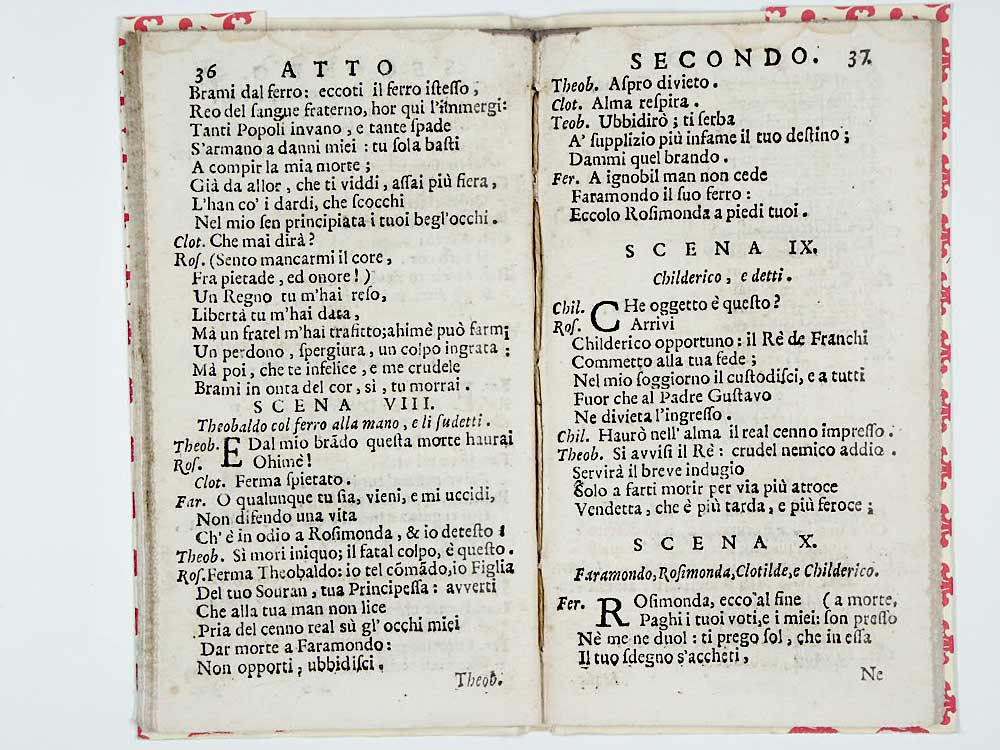 36 ATTO
Brami dal ferro; eccoti il ferro iſteſſo;
Reo del ſangue fraterno, hor qui l'immergi:
Tanti Popoli invano, e tante ſpade
S'armano a danni miei: tu ſola baſti
A compir la mia morte;
Già da allor, che ti viddi, aſſai più fiera,
L'han co' i dardi, che ſcocchi
Nel mio ſen principiata i tuoi begl'occhi.
Clot. Che mai dirà?
Roſ. (Sento mancarmi il core,
Fra pietade, ed onore!)
Un Regno tu m'hai reſo,
Libertà tu m'hai data,
Mà un fratel m'hai trafitto; ahimè può farmi
Un perdono, ſpergiura, un colpo ingrata;
Mà poi, che te infelice, e me crudele
Brami in onta del cor, sì, tu morrai.
SCENA VIII.
Theobaldo col ferro alla mano, e li ſudetti.
Theob. E Dal mio brãdo queſta morte haurai
Roſ. Ohimè!
Clot. Ferma ſpietato.
Far. O qualunque tu ſia, vieni, e mi uccidi,
Non difendo una vita
Ch' è in odio a Roſimonda, & io deteſto!
Theob. Sì mori iniquo; il fatal colpo, è queſto.
Roſ. Ferma Theobaldo: io tel cõmãdo, io Figlia
Del tuo Souran, tua Principeſſa: avverti
Che alla tua man non lice
Pria del cenno real sù gl' occhi miei
Dar morte a Faramondo:
Non opporti, ubbidiſci.
Theob.
SECONDO. 37.
Theob. Aſpro divieto.
Clot. Alma reſpira.
Teob. Ubbidirò; ti ſerba
A' ſupplizio più infame il tuo deſtino;
Dammi quel brando.
Fer. A ignobil man non cede
Faramondo il ſuo ferro:
Eccolo Roſimonda a piedi tuoi.
SCENA IX.
Childerico, e detti.
Chil. CHe oggetto è queſto?
Roſ. Arrivi
Childerico opportuno: il Rè de Franchi
Commetto alla tua fede;
Nel mio ſoggiorno il cuſtodiſci, e a tutti
Fuor che al Padre Guſtavo
Ne divieta l'ingreſſo.
Chil. Haurò nell' alma il real cenno impreſſo.
Theob. Si avviſi il Rè: crudel nemico addio.
Servirà il breve indugio
Solo a farti morir per via più atroce
Vendetta, che è più tarda, e più feroce;
SCENA X.
Faramondo, Roſimonda, Clotilde, e Childerico.
Fer. ROſimonda, ecco al fine (a morte,
Paghi i tuoi voti, e i miei: ſon preſſo
Nè me ne duol: ti prego ſol, che in eſſa
Il tuo ſdegno s'accheti,
Ne